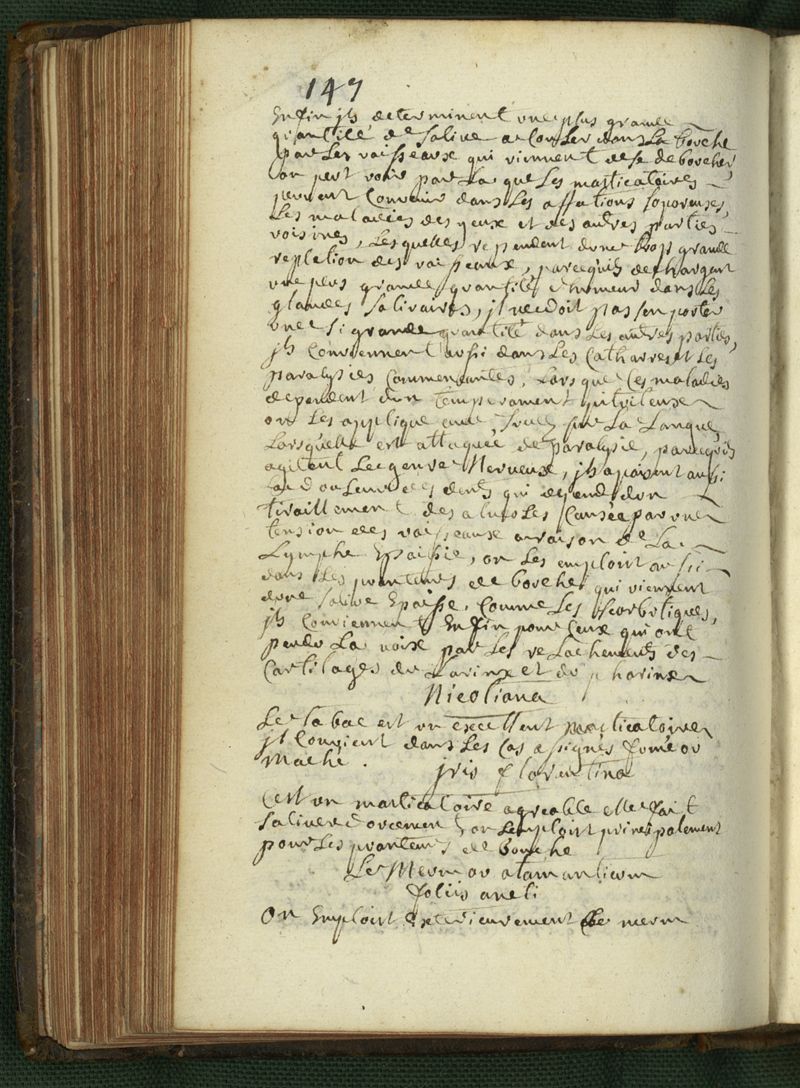 147
Enfin jls determinent une plus grande
quantité de salive a couler dans la bouche
par les vaisseaux qui viennent de se deboucher
on peut voir par la que les masticatoires
peuvent convenir dans les affations soporeuses,
les maladies des yeux et des autres parties
voisines, lesquelles dependent dune trop grande
repletion des vaisseaux, parcequils dechargent
une plus grande quantité dhumeur dans les
glandes salivaires, jl ne doit pas sen porter
une si grande quantité dans les autres parties,
jls conviennent aussi dans les catharres et les
paralysies commencantes, lorsque ces maladies
dependent dun temperament pituiteuse
on les applique avec sur la langue
lorsquelle est attaquée de paralysie, parcequils
agitent le genre nerveux, jls apaisent aussi
la douleur des dents qui depend dun
tiraillement des alveoles causée par une
tension des vaisseaux a raison de la
lymphe epaissie, on les emploit aussi
dans les puanteurs de bouche qui viennent
dune salive epaisse, comme les scorbutiques,
jls conviennent enfin pour ceux qui ont
perdu la voix par les relachements des
cartilages du larinx et du pharinx
Nicotiana
Le tabac est un excellent masticatoire
jl convient dans les cas assignés fumé ou
maché.
jris florentina
Cest un masticatoire agreable elle fait
saliver doucement on lemploit principalement
pour les puanteurs de bouche
Le Meum ou atamanticum
foliis aneti
On Emploit Exterieurement le meum